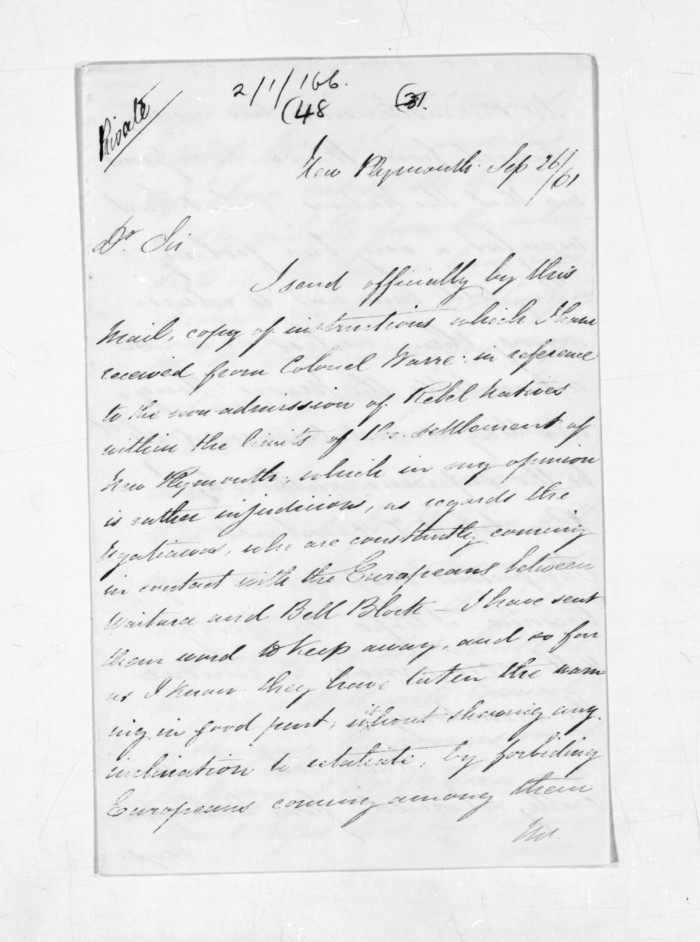 Private
2/1/166.
(48
(31.
New Plymouth. Sep 26/
/61
Dr. Sir
I send officially by this
Mail, copy of instructions which I have
received from Colonel Warre. in reference
to the non-admission of Rebel Natives
within the limits of the settlement of
New Plymouth, which in my opinion
is rather injudicious, as regards the
Ngatiawas, who are constantly coming
in contact with the Europeans between
Waitara and Bell Block - I have sent
them word to keep away, and so far
as I know they have taken the warn-
ing in good part, without shewing any
inclination to retaliate, by forbiding
Europeans coming among them